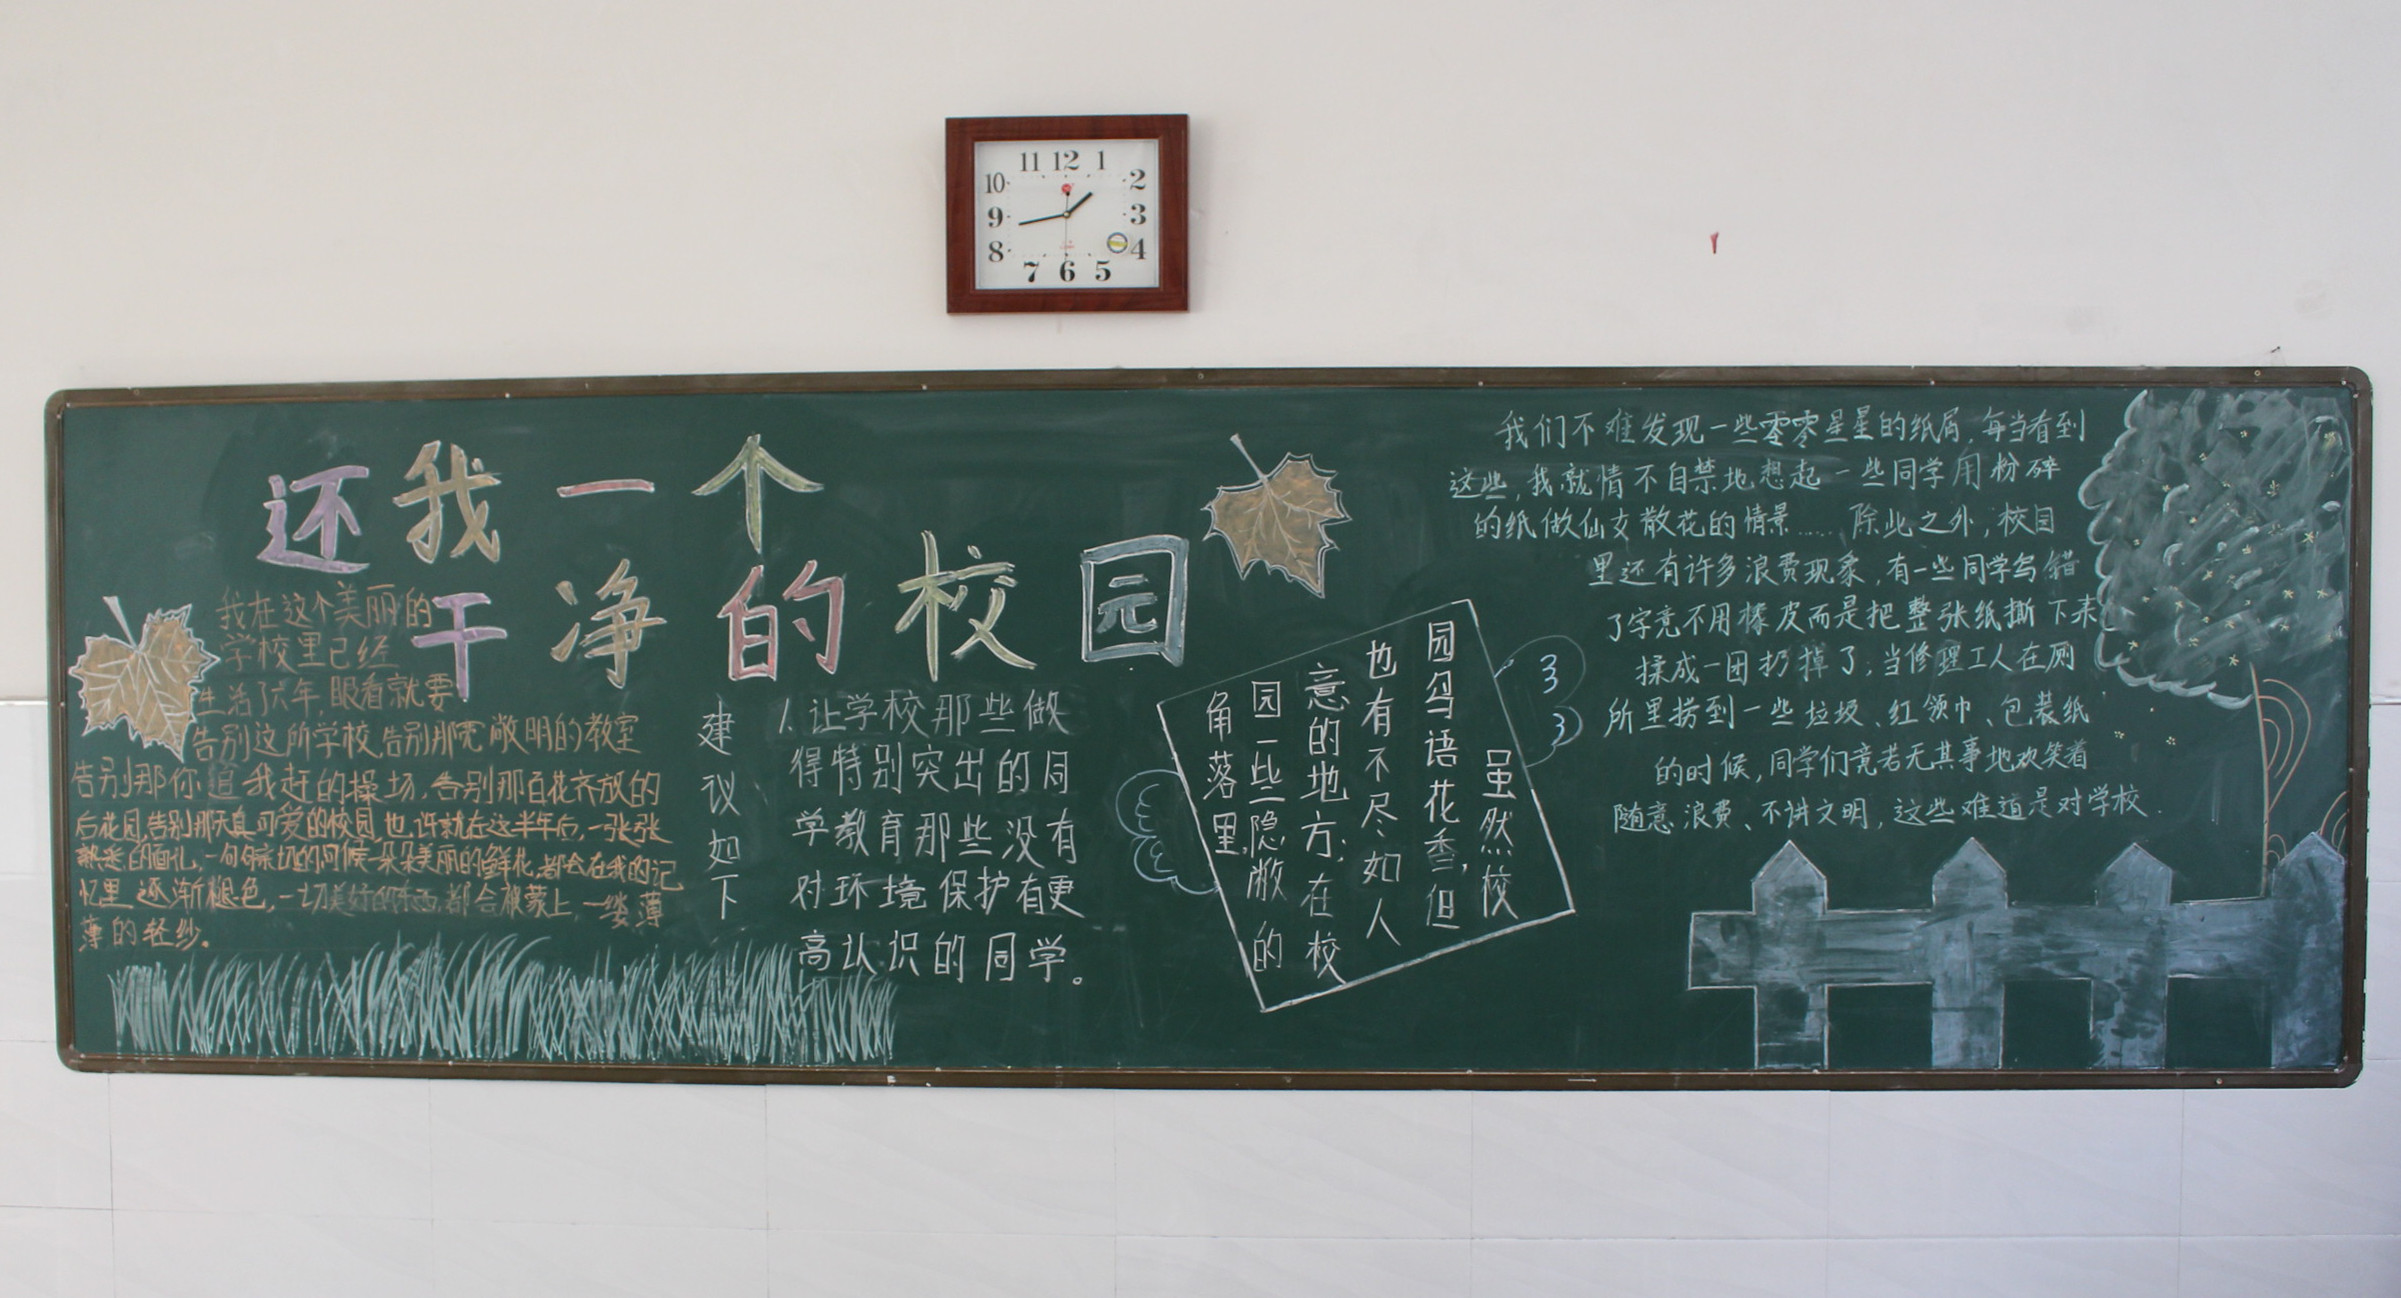 11 12 1
10 2
9 3
8 4
7 6 5
还我一个
干净的校园
我在这个美丽的
学校里已经
生活了六年,眼看就要
告别这所学校,告别那宽敞明的教室
告别那你追我赶的操场,告别那百花齐放的
后花园,告别那天真可爱的校园.也许就在这半年后,一张张
熟悉的面孔,一句句亲切的问候一朵朵美丽的鲜花,都会在我的记
忆里逐渐褪色,一切美好的东西,都会被蒙上,一缕薄
薄的轻纱。
建议如下
1.让学校那些做
得特别突出的同
学教育那些没有
对环境保护有更
高认识的同学。
虽然校
园鸟语花香,但
也有不尽如人
意的地方;在校
园一些隐敝的
角落里,
3
3
我们不难发现一些零零星星的纸屑,每当看到
这些,我就情不自禁地想起一些同学用粉碎
的纸做仙女散花的情景……除此之外,校园
里还有许多浪费现象,有一些同学写错
了字竟不用橡皮而是把整张纸撕下来
揉成一团扔掉了;当修理工人在厕
所里捞到一些垃圾、红领巾、包装纸
的时候,同学们竟若无其事地欢笑着
随意浪费、不讲文明,这些难道是对学校.